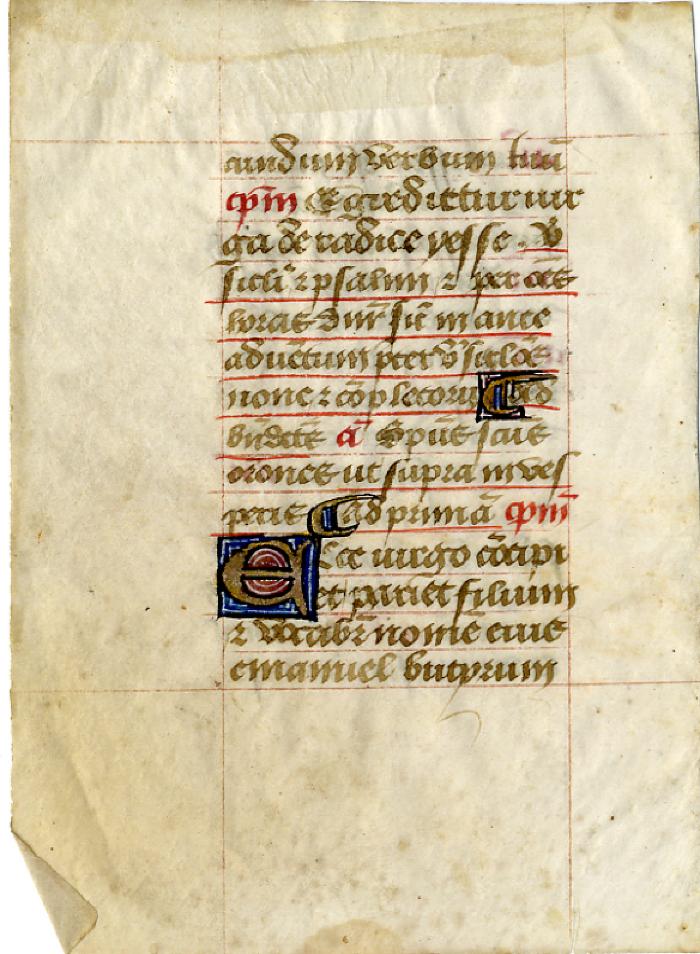 cundum verbum tuū
cpm̄ Egredietur uir
ga de radice yesse . v̄
sicłi ⁊ psalmi ⁊ per oēs
horas dnr̄ sił in ante
aduētum preter v̄sicłos
none ⁊ cōpletorij Ad
bn̄dcts a͞ Spūs scūs
orōnes ut supra in ves
peris Ad primā cpm̄
Ecce uirgo cōcipi
et pariet filium
⁊ vocabr̄ nomē eius
emanuel butyrum